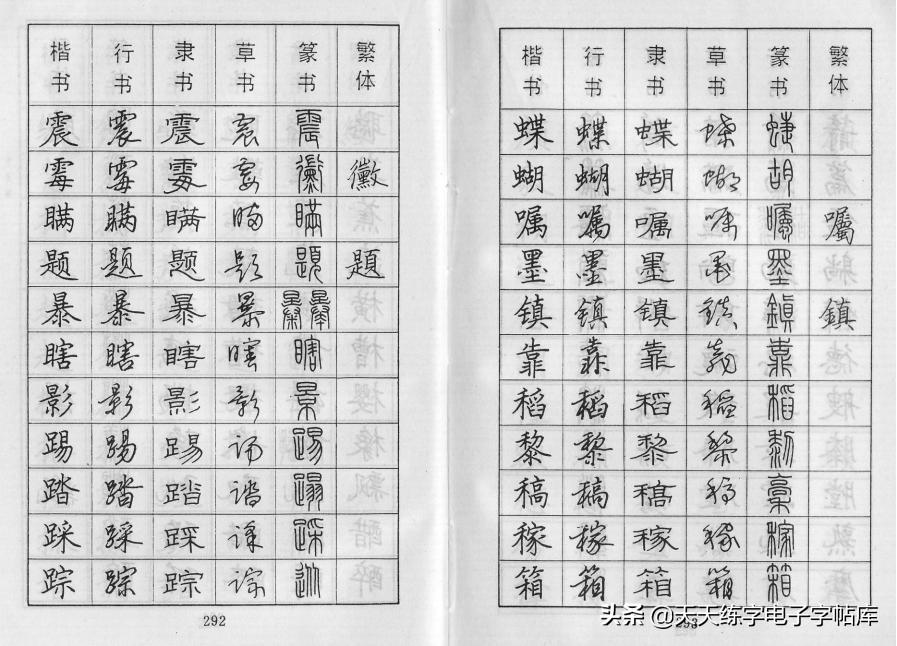 楷书 行书 隶书 草书 篆书 繁体
震 震 震 震 震
霉 霉 霉 霉 黴 黴
瞒 瞒 瞒 瞒 瞞
题 题 题 题 題 題
暴 暴 暴 暴 暴
瞎 瞎 瞎 瞎 瞎
影 影 影 影 景
踢 踢 踢 踢 踢
踏 踏 踏 踏 蹋
踩 踩 踩 踩 踩
踪 踪 踪 踪
292
楷书 行书 隶书 草书 篆书 繁体
蝶 蝶 蝶 蝶
蝴 蝴 蝴 蝴 胡
嘱 嘱 嘱 嘱 囑 囑
墨 墨 墨 墨 墨
镇 镇 镇 镇 鎮 鎮
靠 靠 靠 靠 靠
稻 稻 稻 稻 稻
黎 黎 黎 黎 黎
稿 稿 稿 稿 稾
稼 稼 稼 稼 稼
箱 箱 箱 箱 箱
293
头条 @天天练字电子字帖库